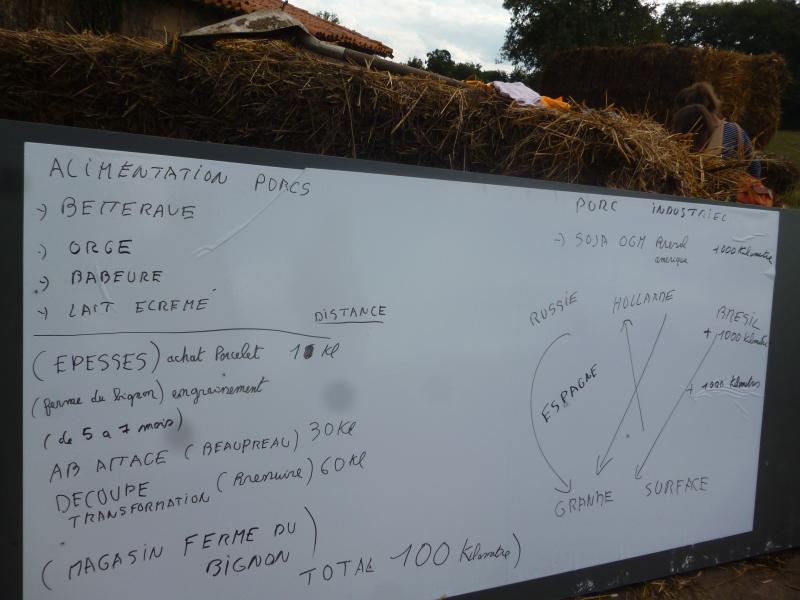 ALIMENTATION PORCS
-> BETTERAVE
-> ORGE
-> BABEURE
-> LAIT ECREMÉ
DISTANCE
(EPESSES) achat Porcelet 10 Kl
(ferme du bignon) engrainement
(de 5 a 7 mois)
ABATTAGE (BEAUPREAU) 30 Kl
DECOUPE
TRANSFORMATION (Bressuire) 60 Kl
(MAGASIN FERME DU
BIGNON)
TOTAL 100 Kilometre)
PORC INDUSTRIEL
-> SOJA OGM Bresil 1000 Kilometre
amerique
RUSSIE HOLLANDE BRESIL
+ 1000 Kilometre
ESPAGNE
+ 1000 Kilometres
GRANDE SURFACE